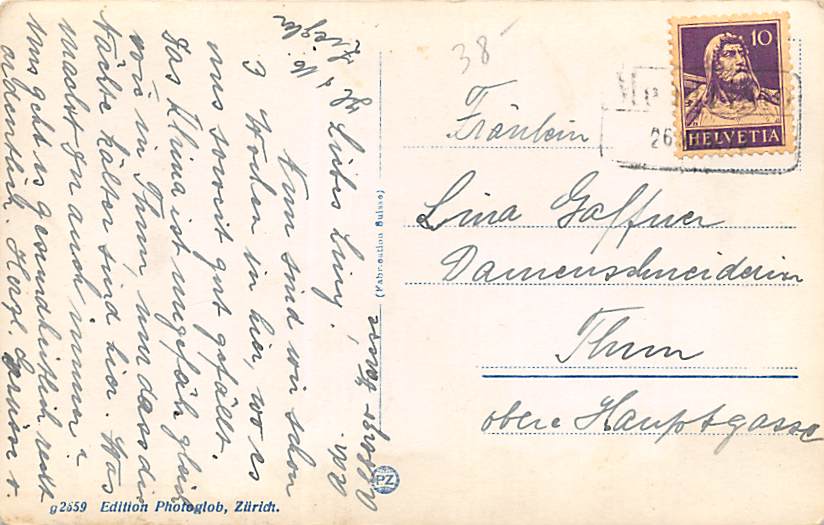 Liebes Liny!
Nun sind wir schon
3 Wochen in hier, wo es
uns soweit gut gefällt.
Das Klima ist ungefähr gleich
wie in Thun, nur dass die
Nächte kälter sind hier. Was
machst Du auch immer?
Uns geht es gesundheitlich recht
ordentlich. Herzl. Grüsse v.
(Fabrication Suisse)
38
Fräulein
Lina Gaffner
Damenschneiderin
Thun
obere Hauptgasse
10
HELVETIA
26
PZ
g2859 Edition Photoglob, Zürich.